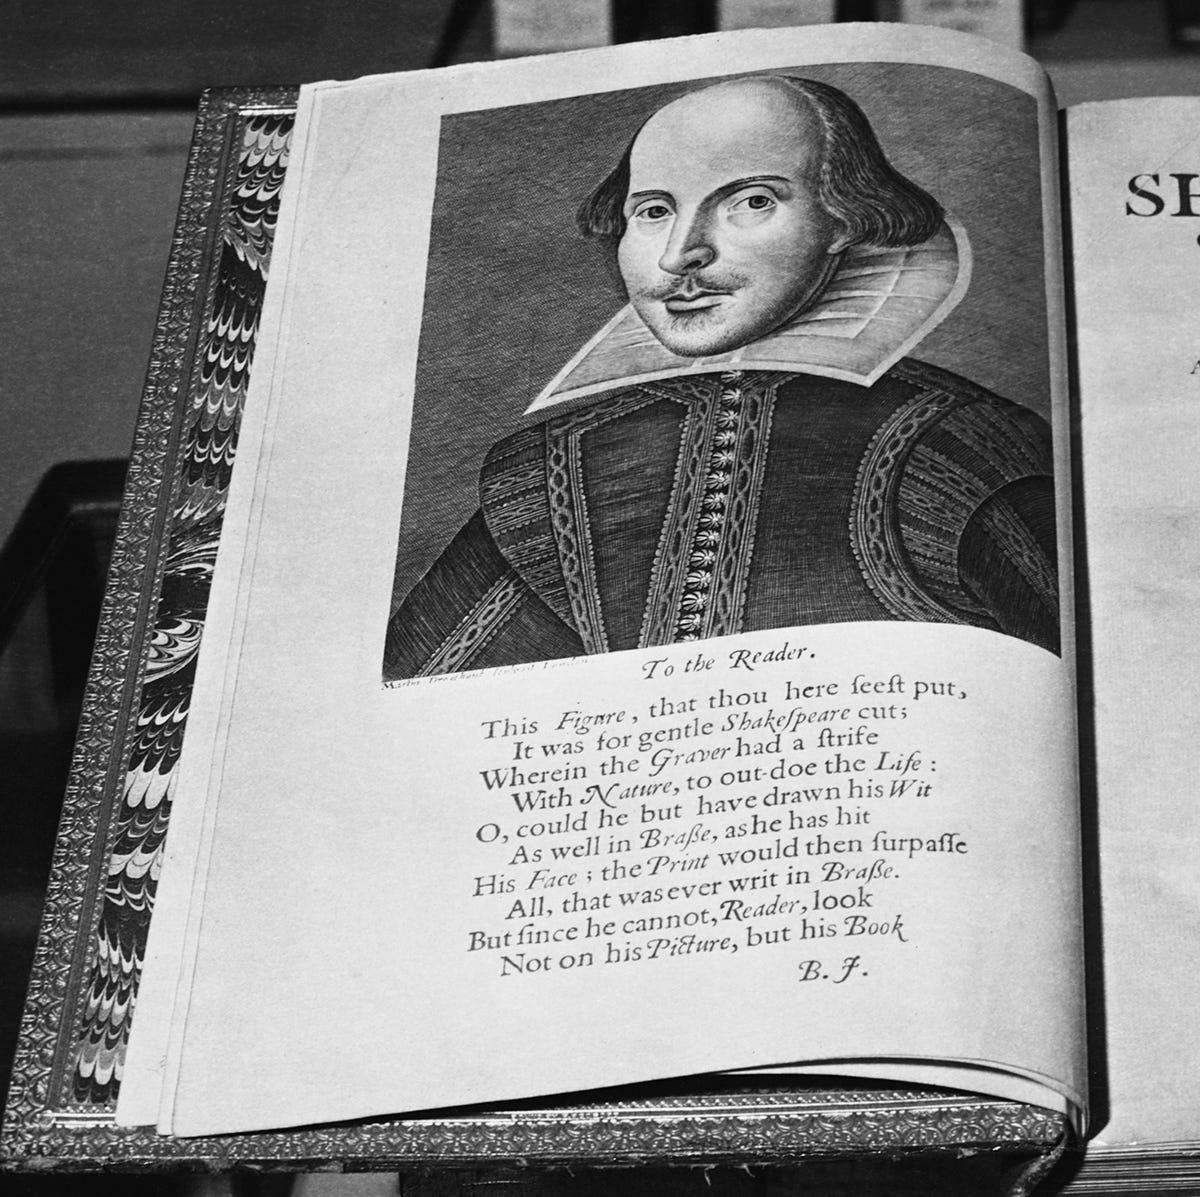 Martin Droeshout sculpsit London.
To the Reader.
This Figure, that thou here ſeeſt put,
It was for gentle Shakeſpeare cut;
Wherein the Graver had a ſtrife
With Nature, to out-doe the Life :
O, could he but have drawn his Wit
As well in Braſſe, as he has hit
His Face ; the Print would then ſurpaſſe
All, that was ever writ in Braſſe.
But ſince he cannot, Reader, look
Not on his Picture, but his Book
B. J.
SH